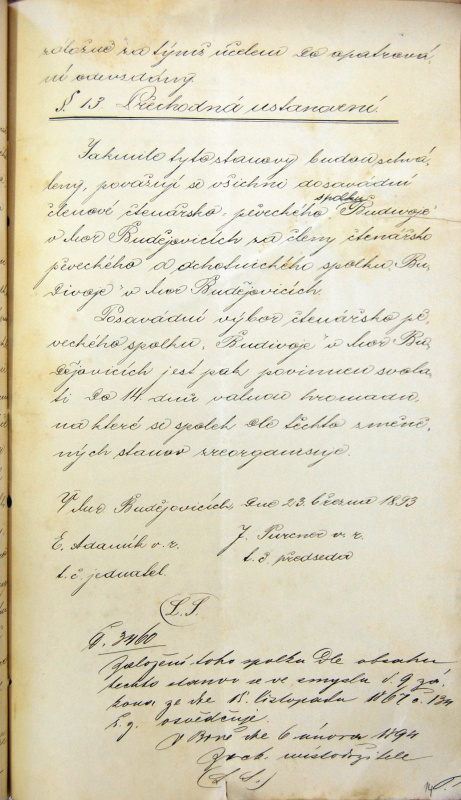 záložně za týmž účelem do opatrová
ní odevzdány
§ 13. Přechodná ustanovení.
Jakmile tyto stanovy budou schvá,
leny, považují se všichni dosavádní
spolku
členové čtenářsko, pěveckého "Budivoje"
v Mor Budějovicích za členy čtenářsko
pěveckého a ochotnického spolku "Bu
divoje" v Mor Budějovicích.
Dosavádní výbor čtenářsko pě,
veckého spolku, "Budivoje" v Mor Bu
dějovicích jest pak povinnen svola,
ti do 14 dnů valnou hromadu,
na které se spolek dle těchto změně,
ných stanov zreorganisuje.
V Mor Budějovicích, dne 23. března 1893
E. Adamík v. r. J. Purcner v. r.
t. č. jednatel t. č. předseda
(L. S.)
Č. 3460
Založení toho spolku dle obsahu
těchto stanov se ve smyslu § 9 zá,
kona ze dne 15. listopadu 1867 č. 134
ř. z. osvědčuje.
V Brně dne 6 února 1894
Za c. k. místodržitele
(L. S.)